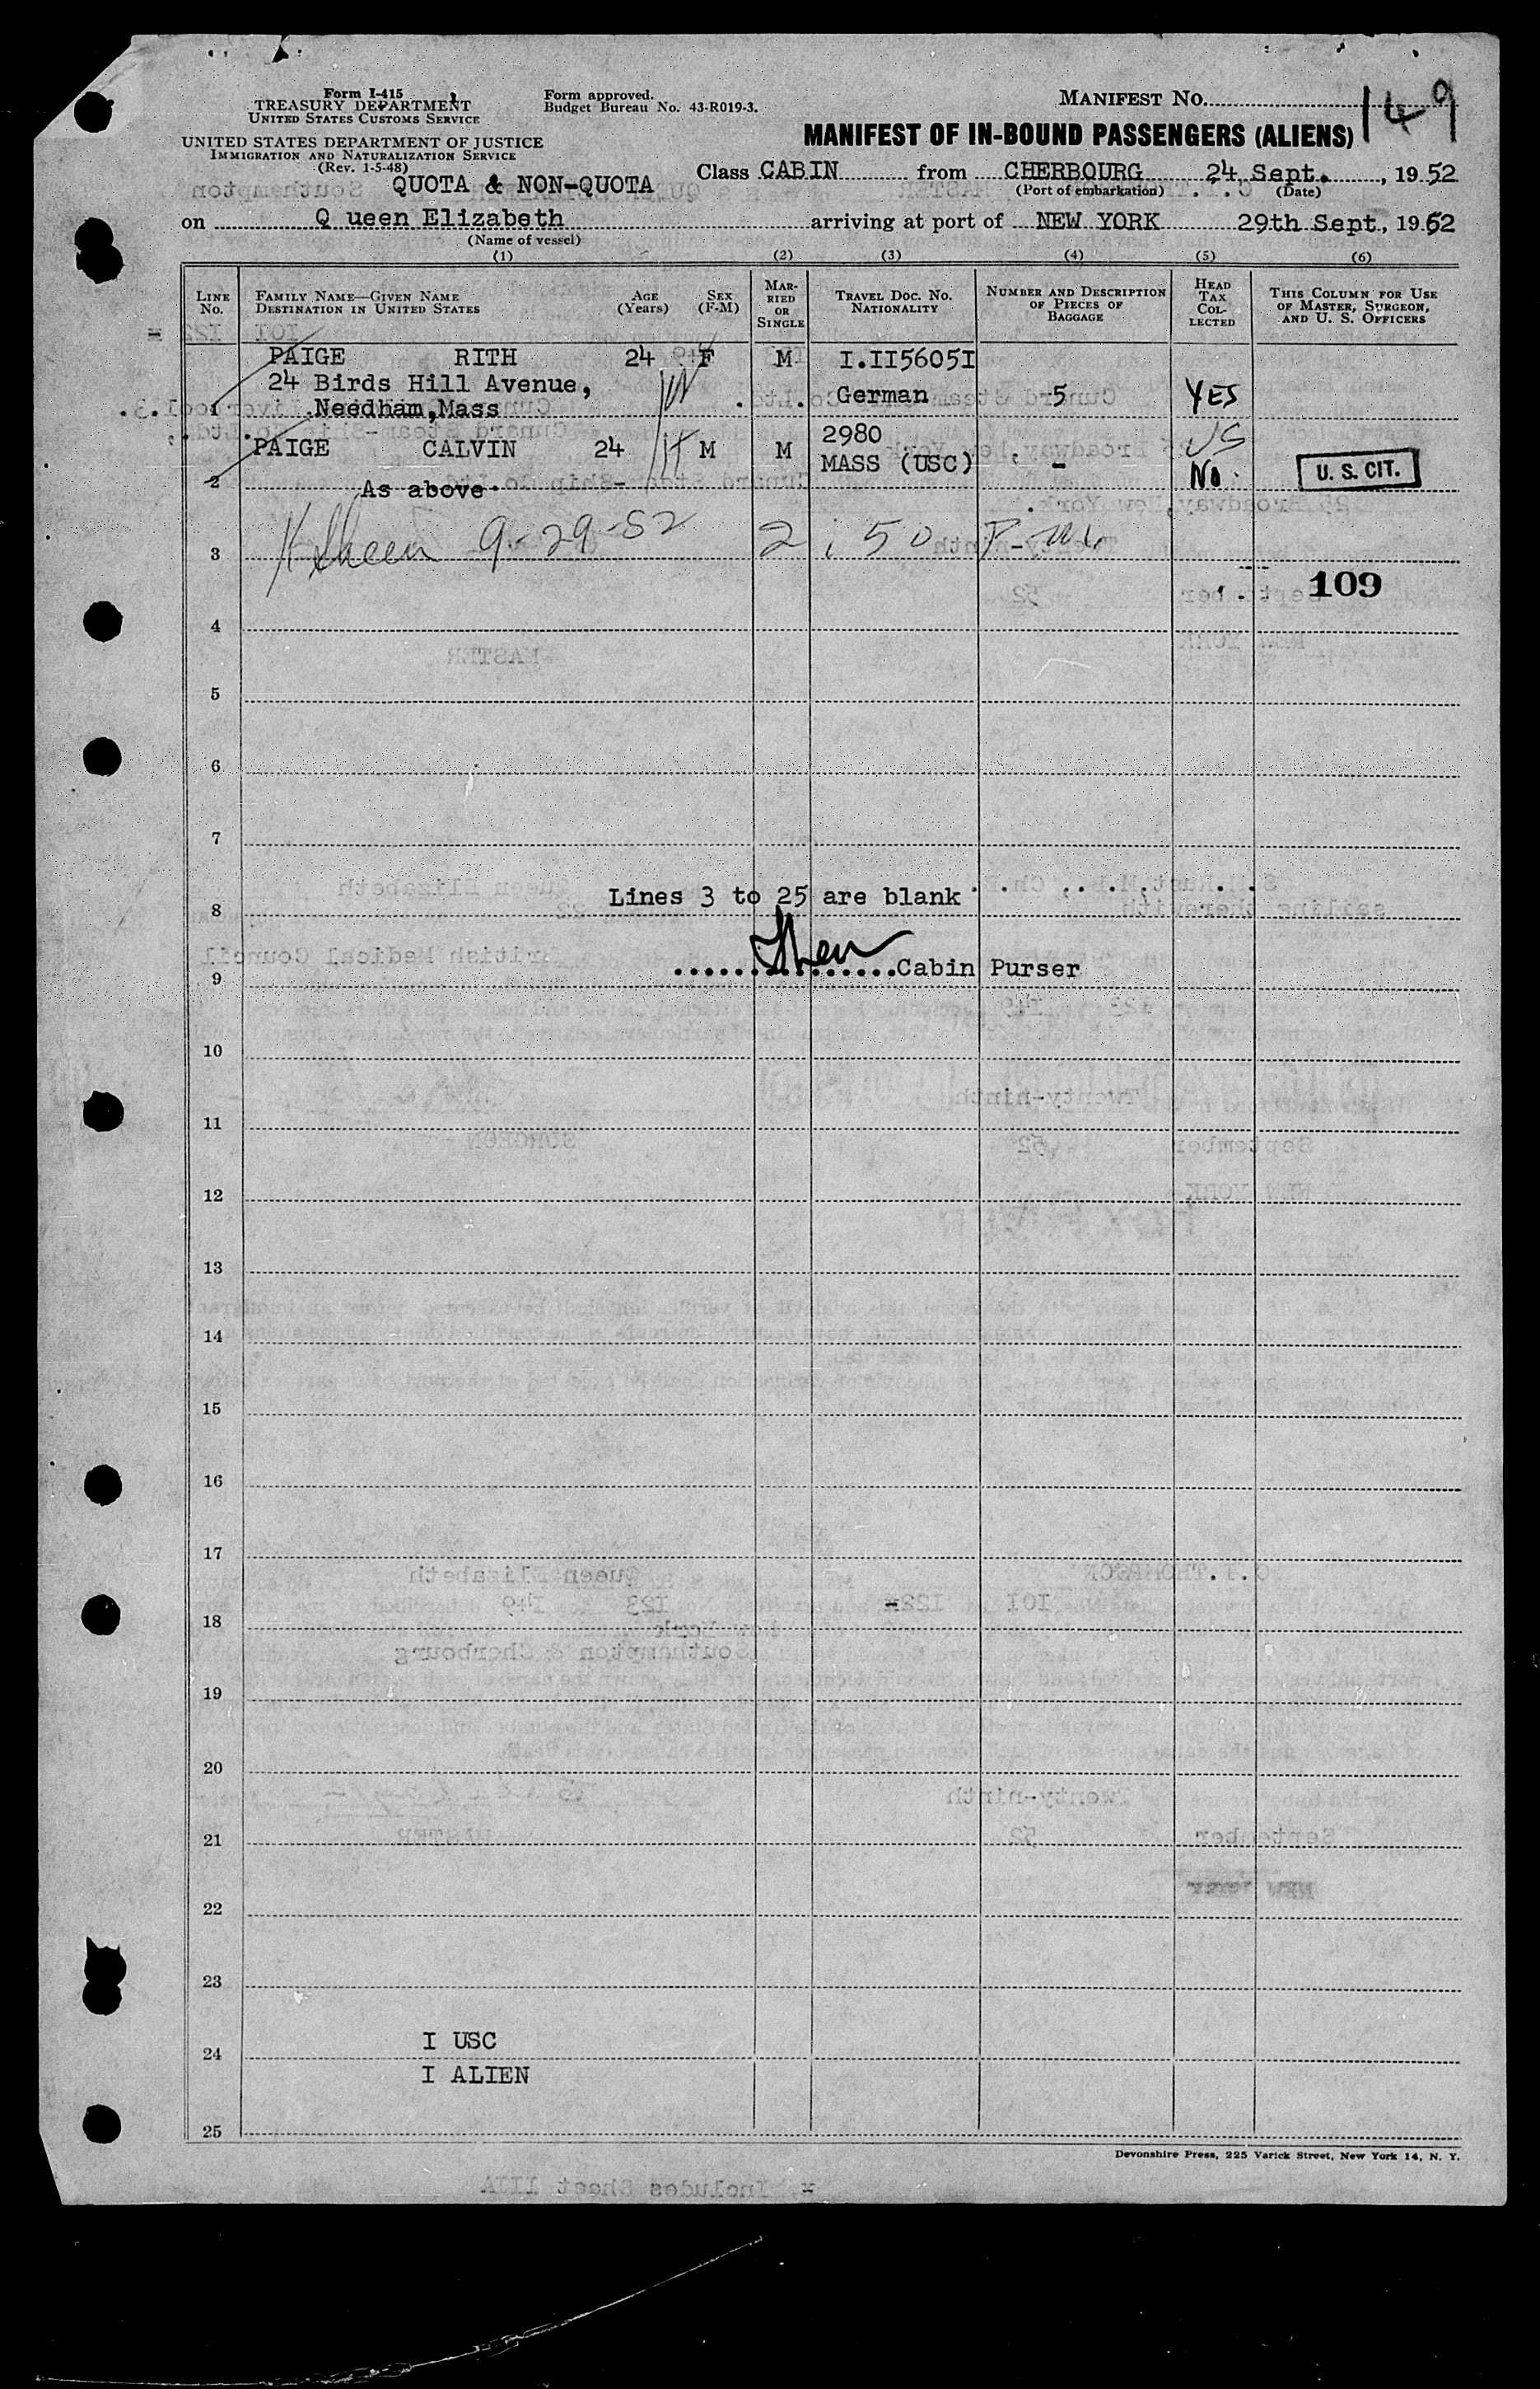 Form I-415
TREASURY DEPARTMENT
UNITED STATES CUSTOMS SERVICE
UNITED STATES DEPARTMENT OF JUSTICE
IMMIGRATION AND NATURALIZATION SERVICE
(Rev. 1-5-48)
Form approved.
Budget Bureau No. 43-R019-3.
MANIFEST NO. 149
MANIFEST OF IN-BOUND PASSENGERS (ALIENS)
QUOTA & NON-QUOTA
Class CABIN from CHERBOURG 24 Sept. , 1952
(Port of embarkation) (Date)
on Q ueen Elizabeth arriving at port of NEW YORK 29th Sept., 1952
(Name of vessel)
(1) (2) (3) (4) (5) (6)
LINE NO. FAMILY NAME—GIVEN NAME DESTINATION IN UNITED STATES AGE (Years) SEX (F-M) MARRIED OR SINGLE TRAVEL DOC. NO. NATIONALITY NUMBER AND DESCRIPTION OF PIECES OF BAGGAGE HEAD TAX COLLECTED THIS COLUMN FOR USE OF MASTER, SURGEON, AND U. S. OFFICERS
PAIGE RITH 24 F M I.II5605I
24 Birds Hill Avenue, German 5 YES
1 Needham,Mass
2980 US
PAIGE CALVIN 24 M M MASS (USC) - No. U. S. CIT.
2 As above
3 9-29-52 2:50 P.M.
109
4
5
6
7
Lines 3 to 25 are blank
8
Cabin Purser
9
10
11
12
13
14
15
16
17
18
19
20
21
22
23
I USC
24
I ALIEN
25
Devonshire Press, 225 Varick Street, New York 14, N. Y.